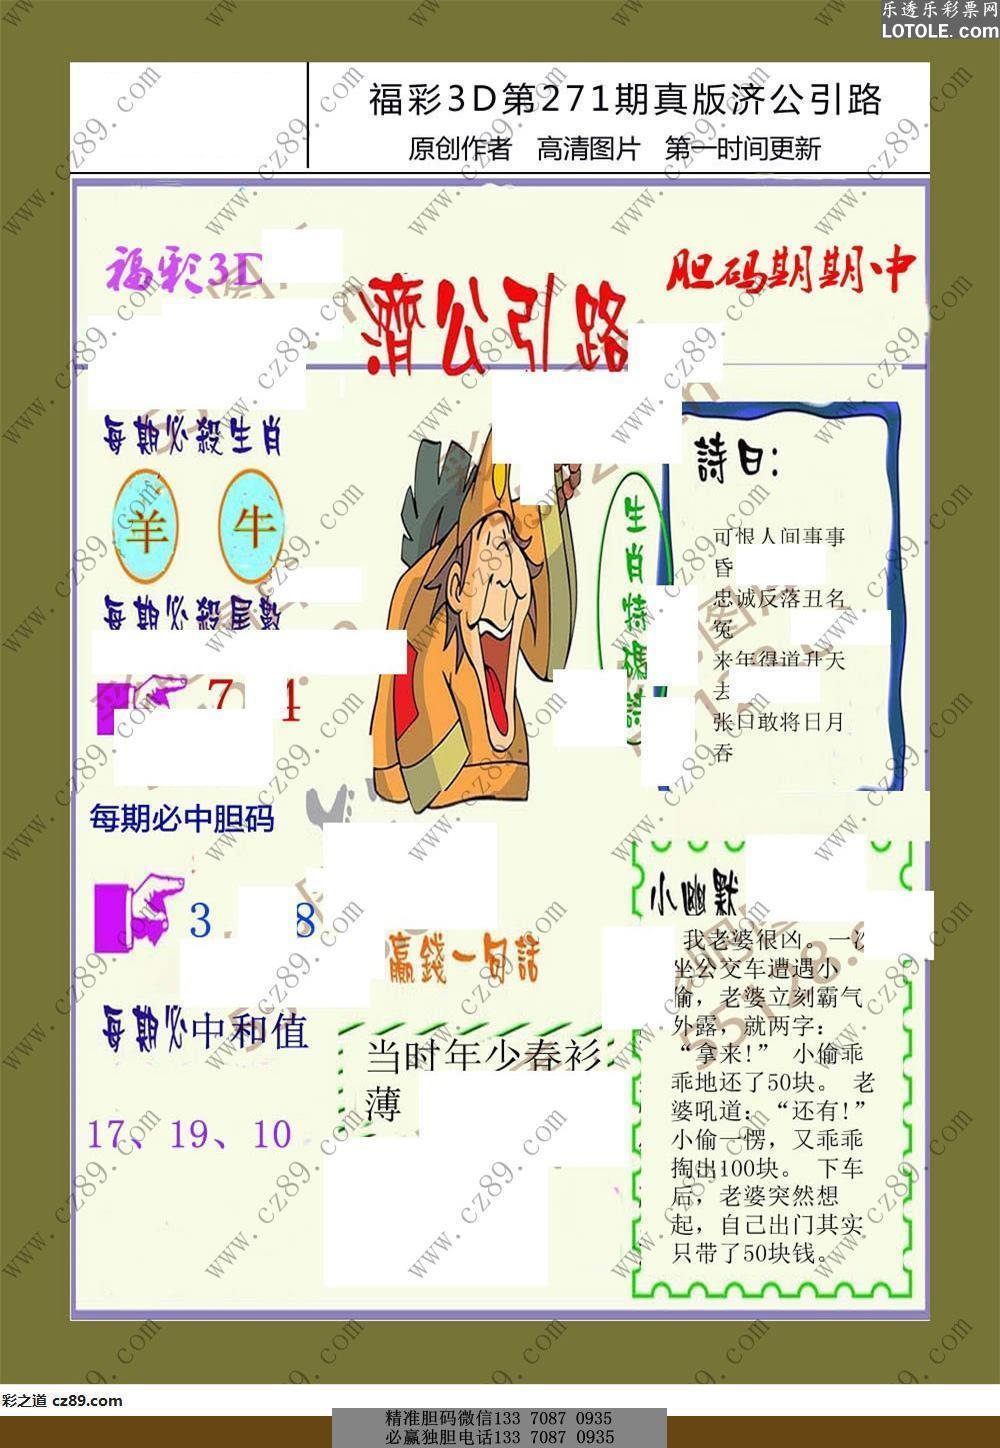 乐透乐彩票网
LOTOLE.com
福彩3D第271期真版济公引路
原创作者 高清图片 第一时间更新
福彩3D
濟公引路
胆码期期中
每期必殺生肖
羊 牛
每期必殺尾數
7 4
每期必中胆码
3 8
每期必中和值
17、19、10
生肖特碼詩
詩曰：
可恨人间事事
昏
忠诚反落丑名
冤
来年得道升天
去
张口敢将日月
吞
赢錢一句話
当时年少春衫
薄
小幽默
我老婆很凶。一次
坐公交车遭遇小
偷，老婆立刻霸气
外露，就两字：
“拿来!” 小偷乖
乖地还了50块。 老
婆吼道：“还有!”
小偷一愣，又乖乖
掏出100块。 下车
后，老婆突然想
起，自己出门其实
只带了50块钱。
www.cz89.com
彩之道 cz89.com
精准胆码微信133 7087 0935
必赢独胆电话133 7087 0935